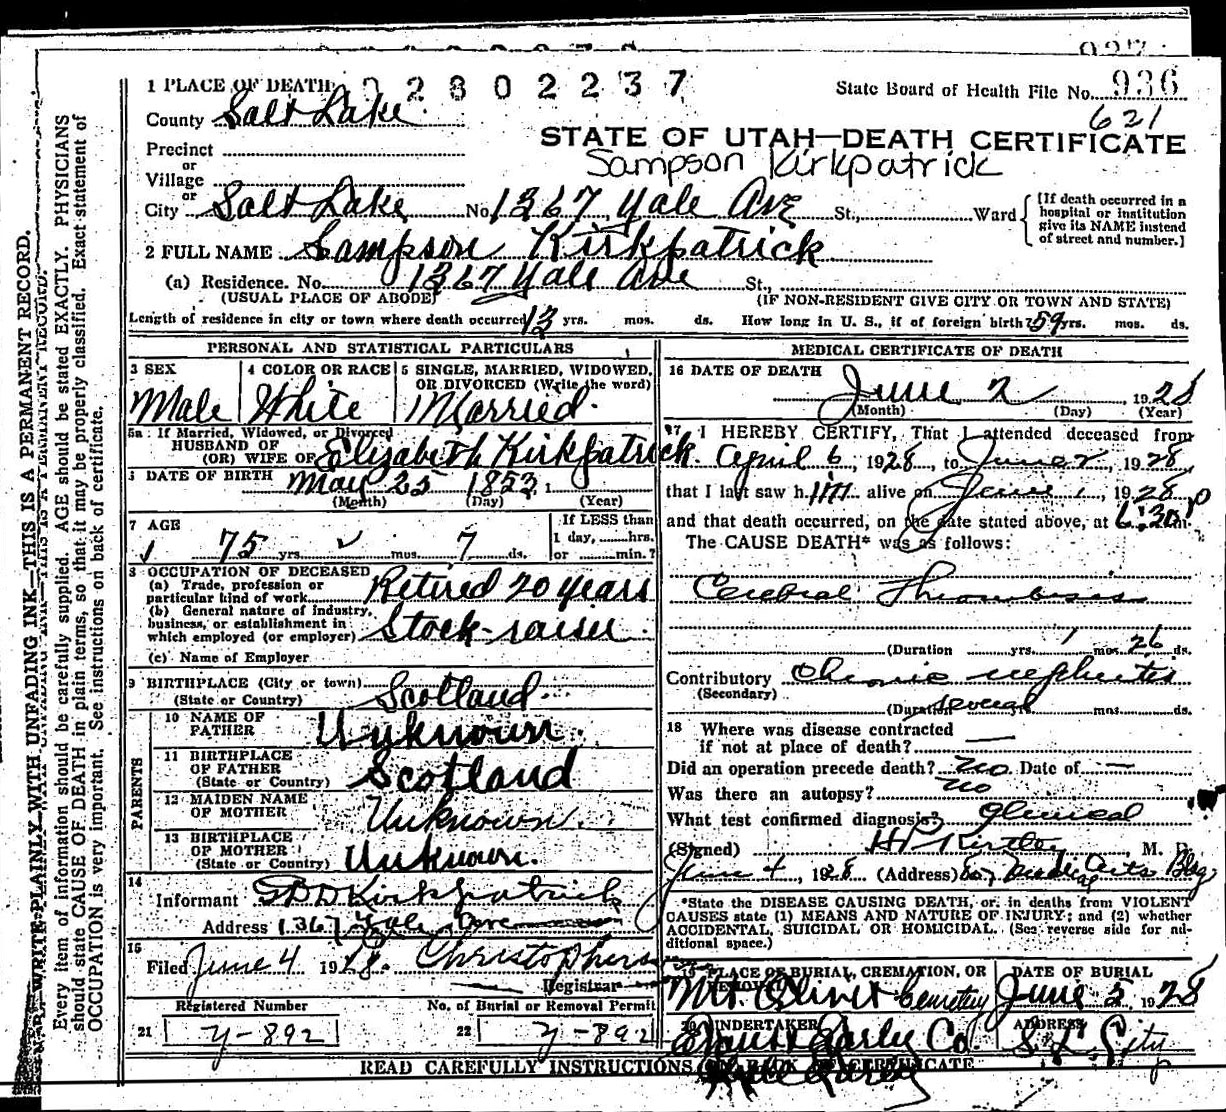 936
1 PLACE OF DEATH 0 2 8 0 2 2 3 7 State Board of Health File No. 936
County Salt Lake 621
STATE OF UTAH—DEATH CERTIFICATE
Precinct
or
Village
Sampson Kirkpatrick
or
City Salt Lake No. 1367 Yale Ave St., Ward
[If death occurred in a hospital or institution give its NAME instead of street and number.]
2 FULL NAME Sampson Kirkpatrick
(a) Residence. No. 1367 Yale Ave St.,
(USUAL PLACE OF ABODE) (IF NON-RESIDENT GIVE CITY OR TOWN AND STATE)
Length of residence in city or town where death occurred 13 yrs. mos. ds. How long in U. S., if of foreign birth? 59 yrs. mos. ds.
PERSONAL AND STATISTICAL PARTICULARS
3 SEX 4 COLOR OR RACE 5 SINGLE, MARRIED, WIDOWED, OR DIVORCED (Write the word)
Male White Married.
5a If Married, Widowed, or Divorced
HUSBAND OF
(OR) WIFE OF Elizabeth Kirkpatrick.
DATE OF BIRTH May 25 1853, 1
(Month) (Day) (Year)
7 AGE If LESS than
75 yrs. mos. 7 ds. 1 day, hrs.
or min.?
8 OCCUPATION OF DECEASED
(a) Trade, profession or
particular kind of work Retired 20 years
(b) General nature of industry,
business, or establishment in
which employed (or employer) Stock-raiser
(c) Name of Employer
9 BIRTHPLACE (City or town)
(State or Country) Scotland
PARENTS
10 NAME OF
FATHER Unknown.
11 BIRTHPLACE
OF FATHER
(State or Country) Scotland
12 MAIDEN NAME
OF MOTHER Unknown.
13 BIRTHPLACE
OF MOTHER
(State or Country) Unknown.
14
Informant Kirkpatrick
Address 1367 Yale Ave
15
Filed June 4 1928.
Registrar
Registered Number No. of Burial or Removal Permit
21 y-892 22 y-892
MEDICAL CERTIFICATE OF DEATH
16 DATE OF DEATH
June 2 1928
(Month) (Day) (Year)
17 I HEREBY CERTIFY, That I attended deceased from
April 6, 1928, to June 2, 1928,
that I last saw him alive on June 1, 1928,
and that death occurred, on the date stated above, at 6:30 p m.
The CAUSE DEATH* was as follows:
Cerebral Thrombosis
(Duration yrs. 1 mos. 26 ds.
Contributory Chronic nephritis
(Secondary)
(Duration several mos. ds.
18 Where was disease contracted
if not at place of death? —
Did an operation precede death? No Date of —
Was there an autopsy? No
What test confirmed diagnosis? Clinical
(Signed) H P Kirtley, M. D.
June 4, 1928 (Address) Medical Arts Bldg
*State the DISEASE CAUSING DEATH, or, in deaths from VIOLENT
CAUSES state (1) MEANS AND NATURE OF INJURY; and (2) whether
ACCIDENTAL, SUICIDAL OR HOMICIDAL. (See reverse side for additional space.)
19 PLACE OF BURIAL, CREMATION, OR REMOVAL DATE OF BURIAL
Mt. Olivet Cemetery June 5 1928
20 UNDERTAKER ADDRESS
Co. S L City
READ CAREFULLY INSTRUCTIONS ON BACK OF CERTIFICATE
WRITE PLAINLY WITH UNFADING INK—THIS IS A PERMANENT RECORD.
Every item of information should be carefully supplied. AGE should be stated EXACTLY. PHYSICIANS
should state CAUSE OF DEATH in plain terms, so that it may be properly classified. Exact statement of
OCCUPATION is very important. See instructions on back of certificate.